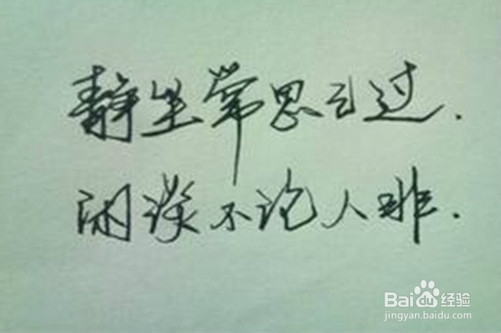 静坐常思己过.
闲谈不论人非.
Baidu经验
jingyan.baidu.com